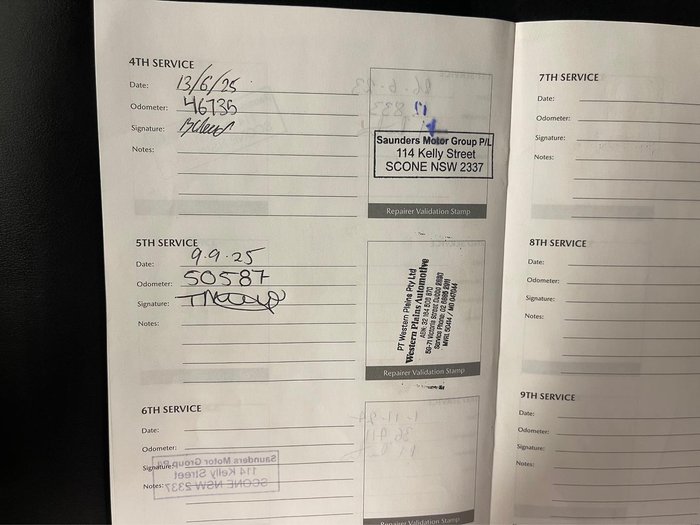 4TH SERVICE
Date: 13/6/25
Odometer: 46735
Signature:
Notes:
Saunders Motor Group P/L
114 Kelly Street
SCONE NSW 2337
Repairer Validation Stamp
5TH SERVICE
Date: 9.9.25
Odometer: 50587
Signature:
Notes:
PT Western Plains Pty Ltd
Western Plains Automotive
Repairer Validation Stamp
6TH SERVICE
Date:
Odometer:
Signature:
Notes:
Saunders Motor Group P/L
114 Kelly Street
SCONE NSW 2337
Repairer Validation Stamp
7TH SERVICE
Date:
Odometer:
Signature:
Notes:
8TH SERVICE
Date:
Odometer:
Signature:
Notes:
9TH SERVICE
Date:
Odometer:
Signature:
Notes: